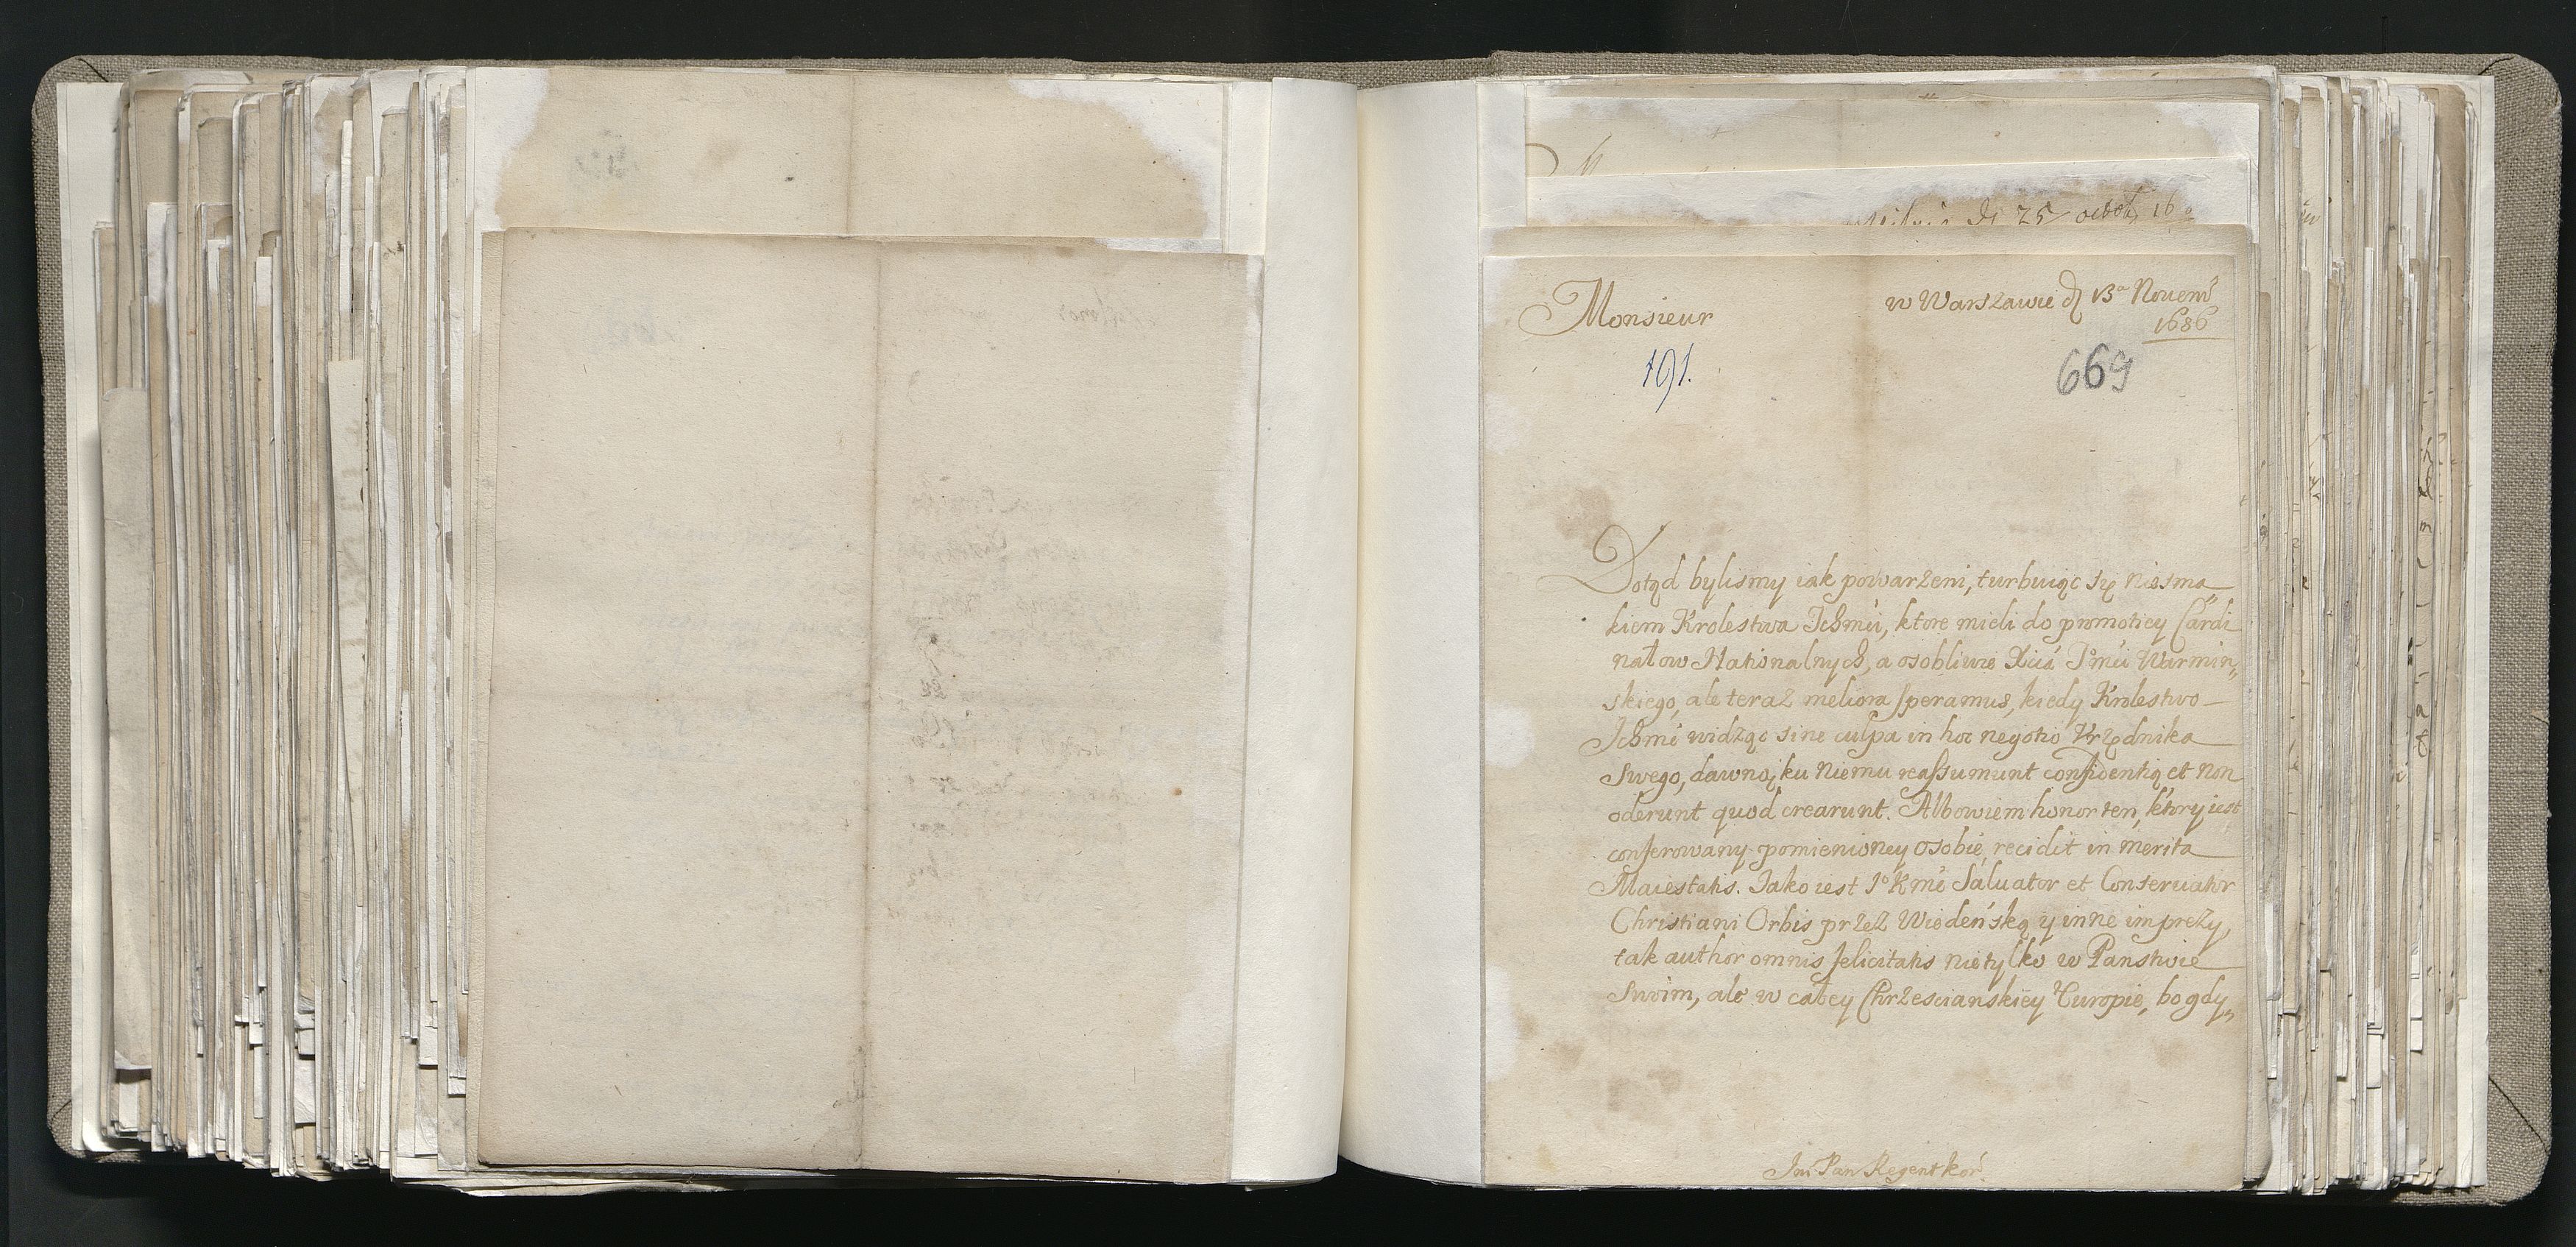 25 octob 16
Monsieur
w Warszawie d 13a Novem
1686
191.
669
Dotąd bylismy iak powarzeni, turbuiąc się niesma
kiem Krolestwa Ichmći, ktore mieli do promotiey Cardi
nałow Nationalnych, a osobliwie Xcia Jmći Warmin„
skiego, ale teraz meliora speramus, kiedy Krolestwo
Ichmć widząc sine culpa in hoc negotio Vrzędnika
Swego, dawną ku niemu reassumunt confidentią et non
oderunt quod crearunt. Albowiem honor ten, ktory iest
conferowany pomienioney osobie, recidit in merita
Maiestatis. Jako iest Jo Kmć Saluator et Conseruator
Christiani Orbis przez Wiedeńską y inne imprezy,
tak author omnis felicitatis nietylko w Panstwie
Swoim, ale w całey Chrzescianskiey Europie, bo gdy„
Jm Pan Regent kor